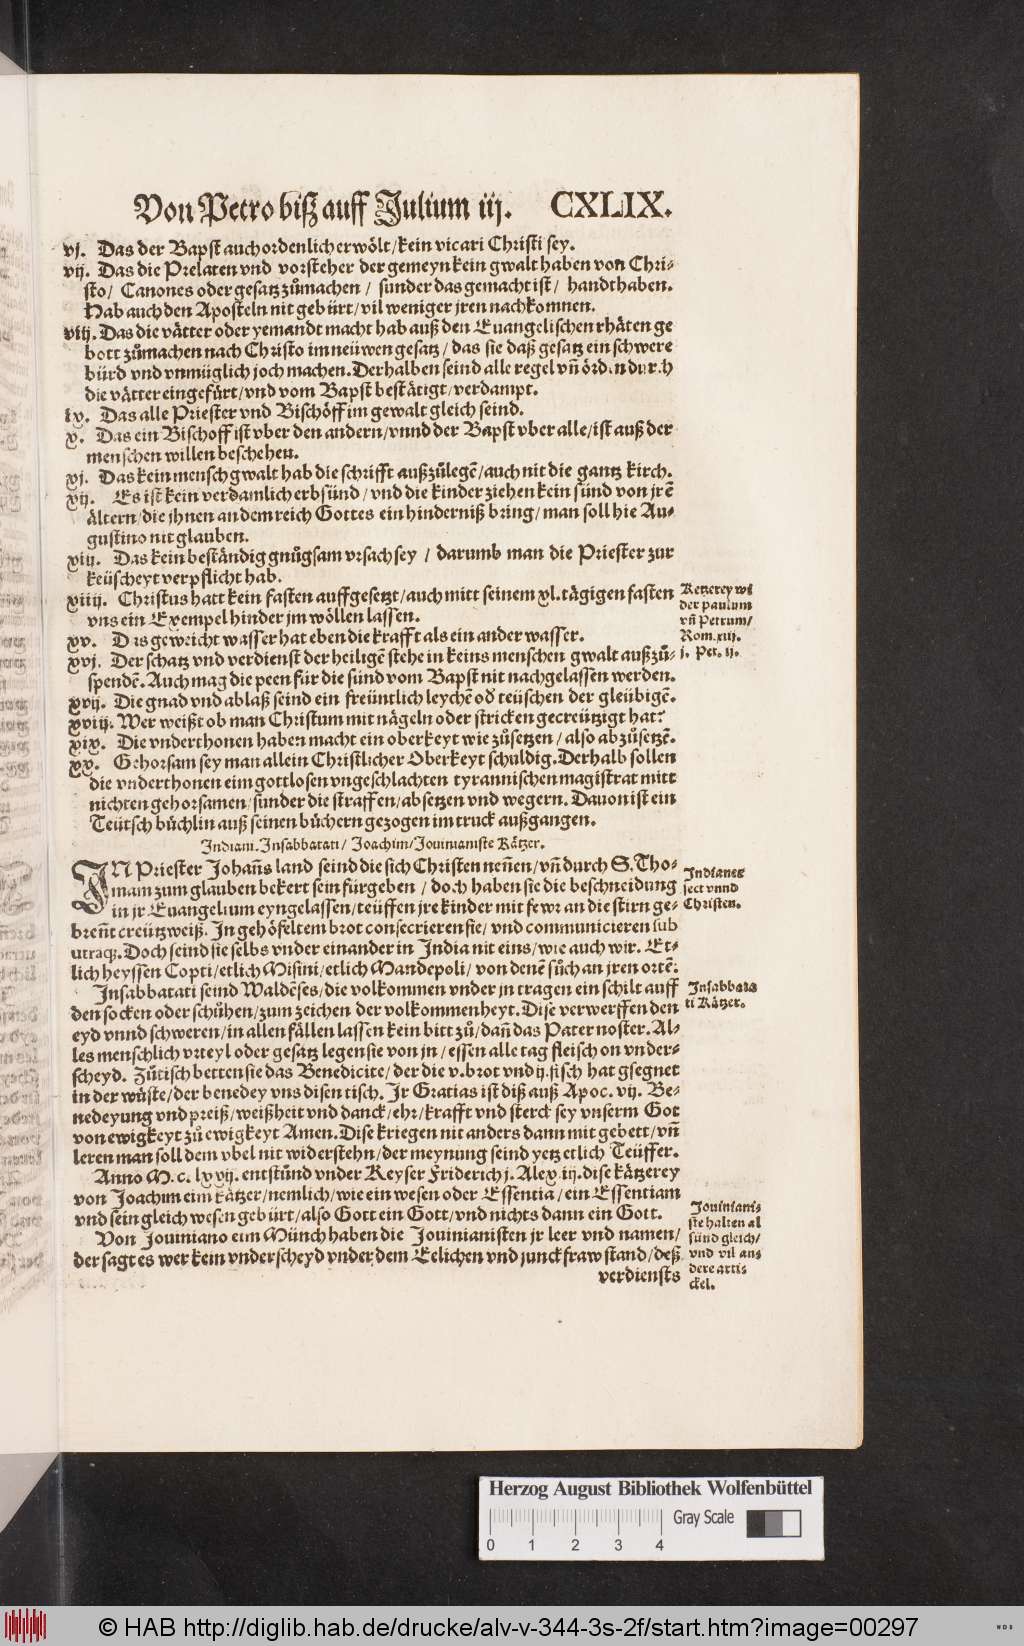 Von Petro biß auff Julium iij. CXLIX.
vj. Das der Bapst auch ordenlich erwölt/ kein vicari Christi sey.
vij. Das die Prelaten vnd vorsteher der gemeyn kein gwalt haben von Chri-
sto/ Canones oder gesatz zůmachen / sunder das gemacht ist/ handthaben.
Hab auch den Aposteln nit gebürt/ vil weniger jren nachkomnen.
viij. Das die vätter oder yemandt macht hab auß den Euangelischen rhäten ge
bott zůmachen nach Christo im neüwen gesatz/ das sie daß gesatz ein schwere
bürd vnd vnmüglich joch machen. Derhalben seind alle regel vñ örden durch
die vätter eingefürt/ vnd vom Bapst bestätigt/ verdampt.
ix. Das alle Priester vnd Bischöff im gewalt gleich seind.
x. Das ein Bischoff ist vber den andern/ vnnd der Bapst vber alle/ ist auß der
menschen willen beschehen.
xj. Das kein mensch gwalt hab die schrifft außzůlegẽ/ auch nit die gantz kirch.
xij. Es ist kein verdamlich erbsünd/ vnd die kinder ziehen kein sünd von jrẽ
ältern/ die jhnen an dem reich Gottes ein hinderniß bring/ man soll hie Au-
gustino nit glauben.
xiij. Das kein beständig gnůgsam vrsach sey / darumb man die Priester zur
keüscheyt verpflicht hab.
xiiij. Christus hatt kein fasten auffgesetzt/ auch mitt seinem xl. tägigen fasten
vns ein Exempel hinder jm wöllen lassen.
Ketzerey wi
der paulum
vñ Petrum/
Rom. xiij.
j. Pet. ij.
xv. Das geweicht wasser hat eben die krafft als ein ander wasser.
xvj. Der schatz vnd verdienst der heiligẽ stehe in keins menschen gwalt außzů-
spendẽ. Auch mag die peen für die sünd vom Bapst nit nachgelassen werden.
xvij. Die gnad vnd ablaß seind ein freüntlich leychẽ od' teüschen der gleübigẽ.
xviij. Wer weißt ob man Christum mit nägeln oder stricken gecreützigt hat?
xix. Die vnderthonen haben macht ein oberkeyt wie zůsetzen / also abzůsetzẽ.
xx. Gehorsam sey man allein Christlicher Oberkeyt schuldig. Derhalb sollen
die vnderthonen eim gottlosen vngeschlachten tyrannischen magistrat mitt
nichten gehorsamen/ sunder die straffen/ absetzen vnd wegern. Dauon ist ein
Teütsch büchlin auß seinen büchern gezogen im truck außgangen.
Indiani. Insabbatati/ Joachim/ Jouinianiste Kätzer.
IN Priester Johañs land seind die sich Christen neñen/ vñ durch S. Tho-
mam zum glauben bekert sein fürgeben / doch haben sie die beschneidung
in jr Euangelium eyngelassen/ teüffen jre kinder mit fewr an die stirn ge-
breñt creützweiß. In gehöfeltem brot consecrieren sie/ vnd communicieren sub
utraq;. Doch seind sie selbs vnder einander in India nit eins/ wie auch wir. Et-
lich heyssen Copti/ etlich Misini/ etlich Mandepoli/ von denẽ sůch an jren ortẽ.
Indianer
sect vnnd
Christen.
Insabbatati seind Waldẽses/ die volkommen vnder jn tragen ein schilt auff
den socken oder schůhen/ zum zeichen der volkommenheyt. Dise verwerffen den
eyd vnnd schweren/ in allen fällen lassen kein bitt zů/ dañ das Pater noster. Al-
les menschlich vrteyl oder gesatz legen sie von jn/ essen alle tag fleisch on vnder-
scheyd. Zůtisch betten sie das Benedicite/ der die v. brot vnd ij. fisch hat gsegnet
in der wüste/ der benedey vns disen tisch. Jr Gratias ist diß auß Apoc. vij. Be-
nedeyung vnd preiß/ weißheit vnd danck/ ehr/ krafft vnd sterck sey vnserm Got
von ewigkeyt zů ewigkeyt Amen. Dise kriegen nit anders dann mit gebett/ vñ
leren man soll dem vbel nit widerstehn/ der meynung seind yetz etlich Teüffer.
Insabbata
ti Kätzer.
Anno M. c. lxvij. entstůnd vnder Keyser Friderich j. Alex. iij. dise kätzerey
von Joachim eim kätzer/ nemlich/ wie ein wesen oder Essentia/ ein Essentiam
vnd sein gleich wesen gebürt/ also Gott ein Gott/ vnd nichts dann ein Gott.
Von Jouiniano eim Münch haben die Jouinianisten jr leer vnd namen/
der sagt es wer kein vnderscheyd vnder dem Eelichen vnd junckfrawstand/ deß
verdiensts
Jouiniani-
ste halten al
sünd gleich/
vnd vil an-
dere arti-
ckel.
Herzog August Bibliothek Wolfenbüttel
Gray Scale
0 1 2 3 4
© HAB http://diglib.hab.de/drucke/alv-v-344-3s-2f/start.htm?image=00297